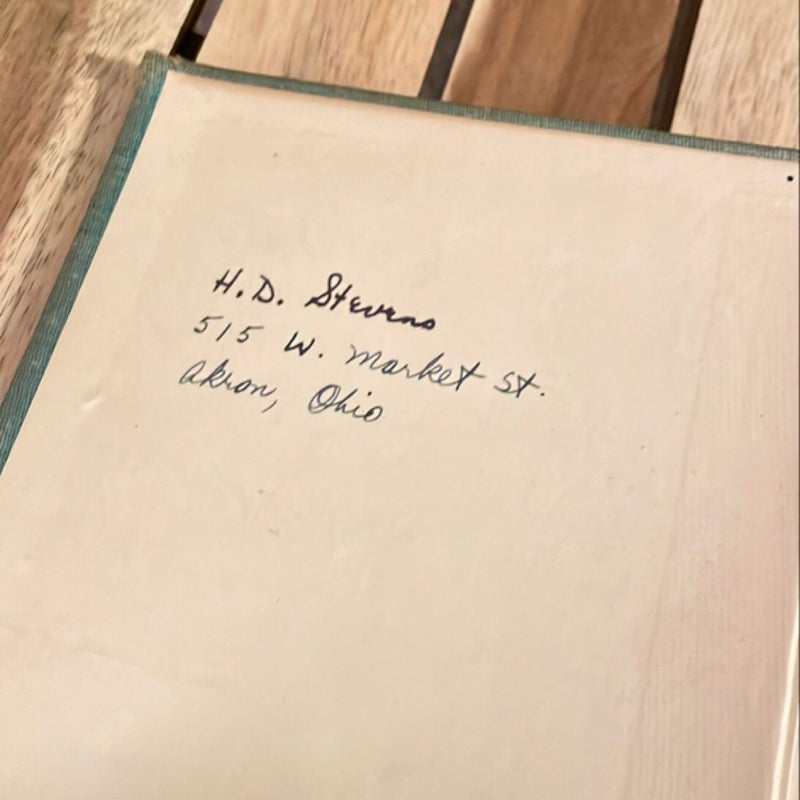 H.D. Stevens
515 W. Market St.
Akron, Ohio